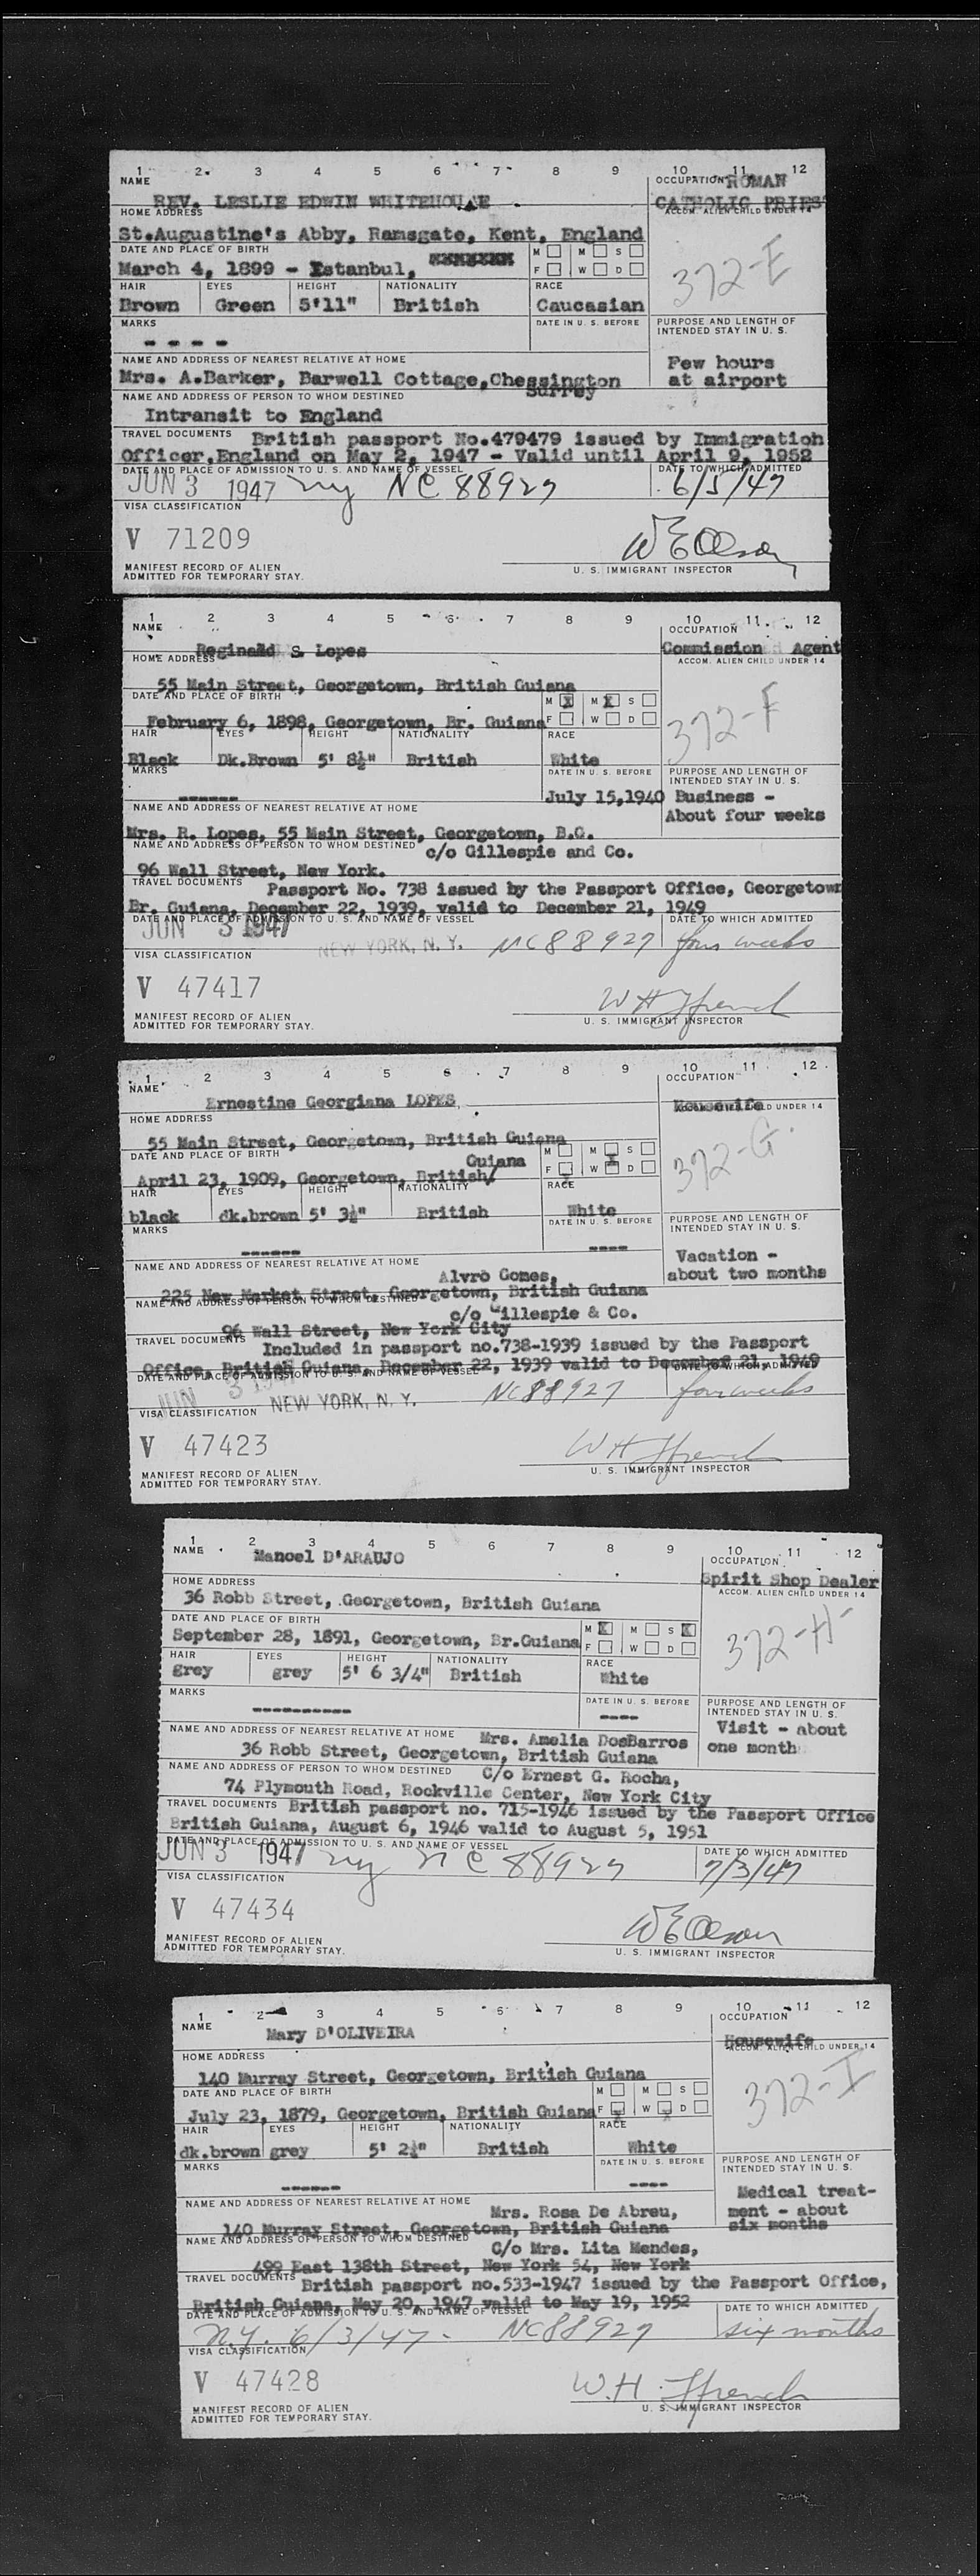 1 2 3 4 5 6 7 8 9 10 11 12
NAME
OCCUPATION ROMAN
REV. LESLIE EDWIN WHITEHOUSE
CATHOLIC PRIEST
HOME ADDRESS
ACCOM. ALIEN CHILD UNDER 14
St.Augustine's Abby, Ramsgate, Kent, England
DATE AND PLACE OF BIRTH
M M S
March 4, 1899 - Istanbul,
F W D
372-E
HAIR EYES HEIGHT NATIONALITY RACE
Brown Green 5'11" British Caucasian
MARKS
DATE IN U. S. BEFORE
PURPOSE AND LENGTH OF
INTENDED STAY IN U. S.
- - - -
NAME AND ADDRESS OF NEAREST RELATIVE AT HOME
Few hours
Mrs. A.Barker, Barwell Cottage,Chessington
at airport
NAME AND ADDRESS OF PERSON TO WHOM DESTINED
Surrey
Intransit to England
TRAVEL DOCUMENTS British passport No.479479 issued by Immigration
Officer,England on May 2, 1947 - Valid until April 9, 1952
DATE AND PLACE OF ADMISSION TO U. S. AND NAME OF VESSEL
DATE TO WHICH ADMITTED
JUN 3 1947 ny NC 88927 6/5/47
VISA CLASSIFICATION
V 71209
WE Olson
MANIFEST RECORD OF ALIEN
ADMITTED FOR TEMPORARY STAY.
U. S. IMMIGRANT INSPECTOR
1 2 3 4 5 6 7 8 9 10 11 12
NAME
OCCUPATION
Reginald S. Lopes
Commission Agent
HOME ADDRESS
ACCOM. ALIEN CHILD UNDER 14
55 Main Street, Georgetown, British Guiana
DATE AND PLACE OF BIRTH
M X M X S
February 6, 1898, Georgetown, Br. Guiana
F W D
372-F
HAIR EYES HEIGHT NATIONALITY RACE
Black Dk.Brown 5' 8½" British White
MARKS
DATE IN U. S. BEFORE
PURPOSE AND LENGTH OF
INTENDED STAY IN U. S.
------
July 15,1940 Business -
NAME AND ADDRESS OF NEAREST RELATIVE AT HOME
About four weeks
Mrs. R. Lopes, 55 Main Street, Georgetown, B.G.
NAME AND ADDRESS OF PERSON TO WHOM DESTINED
c/o Gillespie and Co.
96 Wall Street, New York.
TRAVEL DOCUMENTS Passport No. 738 issued by the Passport Office, Georgetown
Br. Guiana, December 22, 1939, valid to December 21, 1949
DATE AND PLACE OF ADMISSION TO U. S. AND NAME OF VESSEL
DATE TO WHICH ADMITTED
JUN 3 1947 NEW YORK, N. Y. NC88927 four weeks
VISA CLASSIFICATION
V 47417
W H Ffrench
MANIFEST RECORD OF ALIEN
ADMITTED FOR TEMPORARY STAY.
U. S. IMMIGRANT INSPECTOR
1 2 3 4 5 6 7 8 9 10 11 12
NAME
OCCUPATION
Ernestine Georgiana LOPES
Housewife
HOME ADDRESS
ACCOM. ALIEN CHILD UNDER 14
55 Main Street, Georgetown, British Guiana
DATE AND PLACE OF BIRTH
M M X S
Guiana
April 23, 1909, Georgetown, British/
F X W D
372-G
HAIR EYES HEIGHT NATIONALITY RACE
black dk.brown 5' 3½" British White
MARKS
DATE IN U. S. BEFORE
PURPOSE AND LENGTH OF
INTENDED STAY IN U. S.
------
----
Vacation -
NAME AND ADDRESS OF NEAREST RELATIVE AT HOME
about two months
Alvro Gomes,
225 New Market Street, Georgetown, British Guiana
NAME AND ADDRESS OF PERSON TO WHOM DESTINED
c/o Gillespie & Co.
96 Wall Street, New York City
TRAVEL DOCUMENTS Included in passport no.738-1939 issued by the Passport
Office, British Guiana, December 22, 1939 valid to December 21, 1949
DATE AND PLACE OF ADMISSION TO U. S. AND NAME OF VESSEL
DATE TO WHICH ADMITTED
JUN 3 1947 NEW YORK, N. Y. NC88927 four weeks
VISA CLASSIFICATION
V 47423
W H Ffrench
MANIFEST RECORD OF ALIEN
ADMITTED FOR TEMPORARY STAY.
U. S. IMMIGRANT INSPECTOR
1 2 3 4 5 6 7 8 9 10 11 12
NAME
OCCUPATION
Manoel D'ARAUJO
Spirit Shop Dealer
HOME ADDRESS
ACCOM. ALIEN CHILD UNDER 14
36 Robb Street, Georgetown, British Guiana
DATE AND PLACE OF BIRTH
M X M S X
September 28, 1891, Georgetown, Br.Guiana
F W D
372-H
HAIR EYES HEIGHT NATIONALITY RACE
grey grey 5' 6 3/4" British White
MARKS
DATE IN U. S. BEFORE
PURPOSE AND LENGTH OF
INTENDED STAY IN U. S.
----------
----
Visit - about
one month
NAME AND ADDRESS OF NEAREST RELATIVE AT HOME Mrs. Amelia DosBarros
36 Robb Street, Georgetown, British Guiana
NAME AND ADDRESS OF PERSON TO WHOM DESTINED C/o Ernest G. Rocha,
74 Plymouth Road, Rockville Center, New York City
TRAVEL DOCUMENTS British passport no. 715-1946 issued by the Passport Office
British Guiana, August 6, 1946 valid to August 5, 1951
DATE AND PLACE OF ADMISSION TO U. S. AND NAME OF VESSEL
DATE TO WHICH ADMITTED
JUN 3 1947 ny NC 88927 7/3/47
VISA CLASSIFICATION
V 47434
WE Olson
MANIFEST RECORD OF ALIEN
ADMITTED FOR TEMPORARY STAY.
U. S. IMMIGRANT INSPECTOR
1 2 3 4 5 6 7 8 9 10 11 12
NAME
OCCUPATION
Mary D'OLIVEIRA
Housewife
HOME ADDRESS
ACCOM. ALIEN CHILD UNDER 14
140 Murray Street, Georgetown, British Guiana
DATE AND PLACE OF BIRTH
M M S
July 23, 1879, Georgetown, British Guiana
F X W X D
372-I
HAIR EYES HEIGHT NATIONALITY RACE
dk.brown grey 5' 2½" British White
MARKS
DATE IN U. S. BEFORE
PURPOSE AND LENGTH OF
INTENDED STAY IN U. S.
------
----
Medical treat-
ment - about
six months
NAME AND ADDRESS OF NEAREST RELATIVE AT HOME
Mrs. Rosa De Abreu,
140 Murray Street, Georgetown, British Guiana
NAME AND ADDRESS OF PERSON TO WHOM DESTINED
C/o Mrs. Lita Mendes,
499 East 138th Street, New York 54, New York
TRAVEL DOCUMENTS British passport no.533-1947 issued by the Passport Office,
British Guiana, May 20, 1947 valid to May 19, 1952
DATE AND PLACE OF ADMISSION TO U. S. AND NAME OF VESSEL
DATE TO WHICH ADMITTED
N.Y. 6/3/47- NC88927 six months
VISA CLASSIFICATION
V 47428
W.H. Ffrench
MANIFEST RECORD OF ALIEN
ADMITTED FOR TEMPORARY STAY.
U. S. IMMIGRANT INSPECTOR